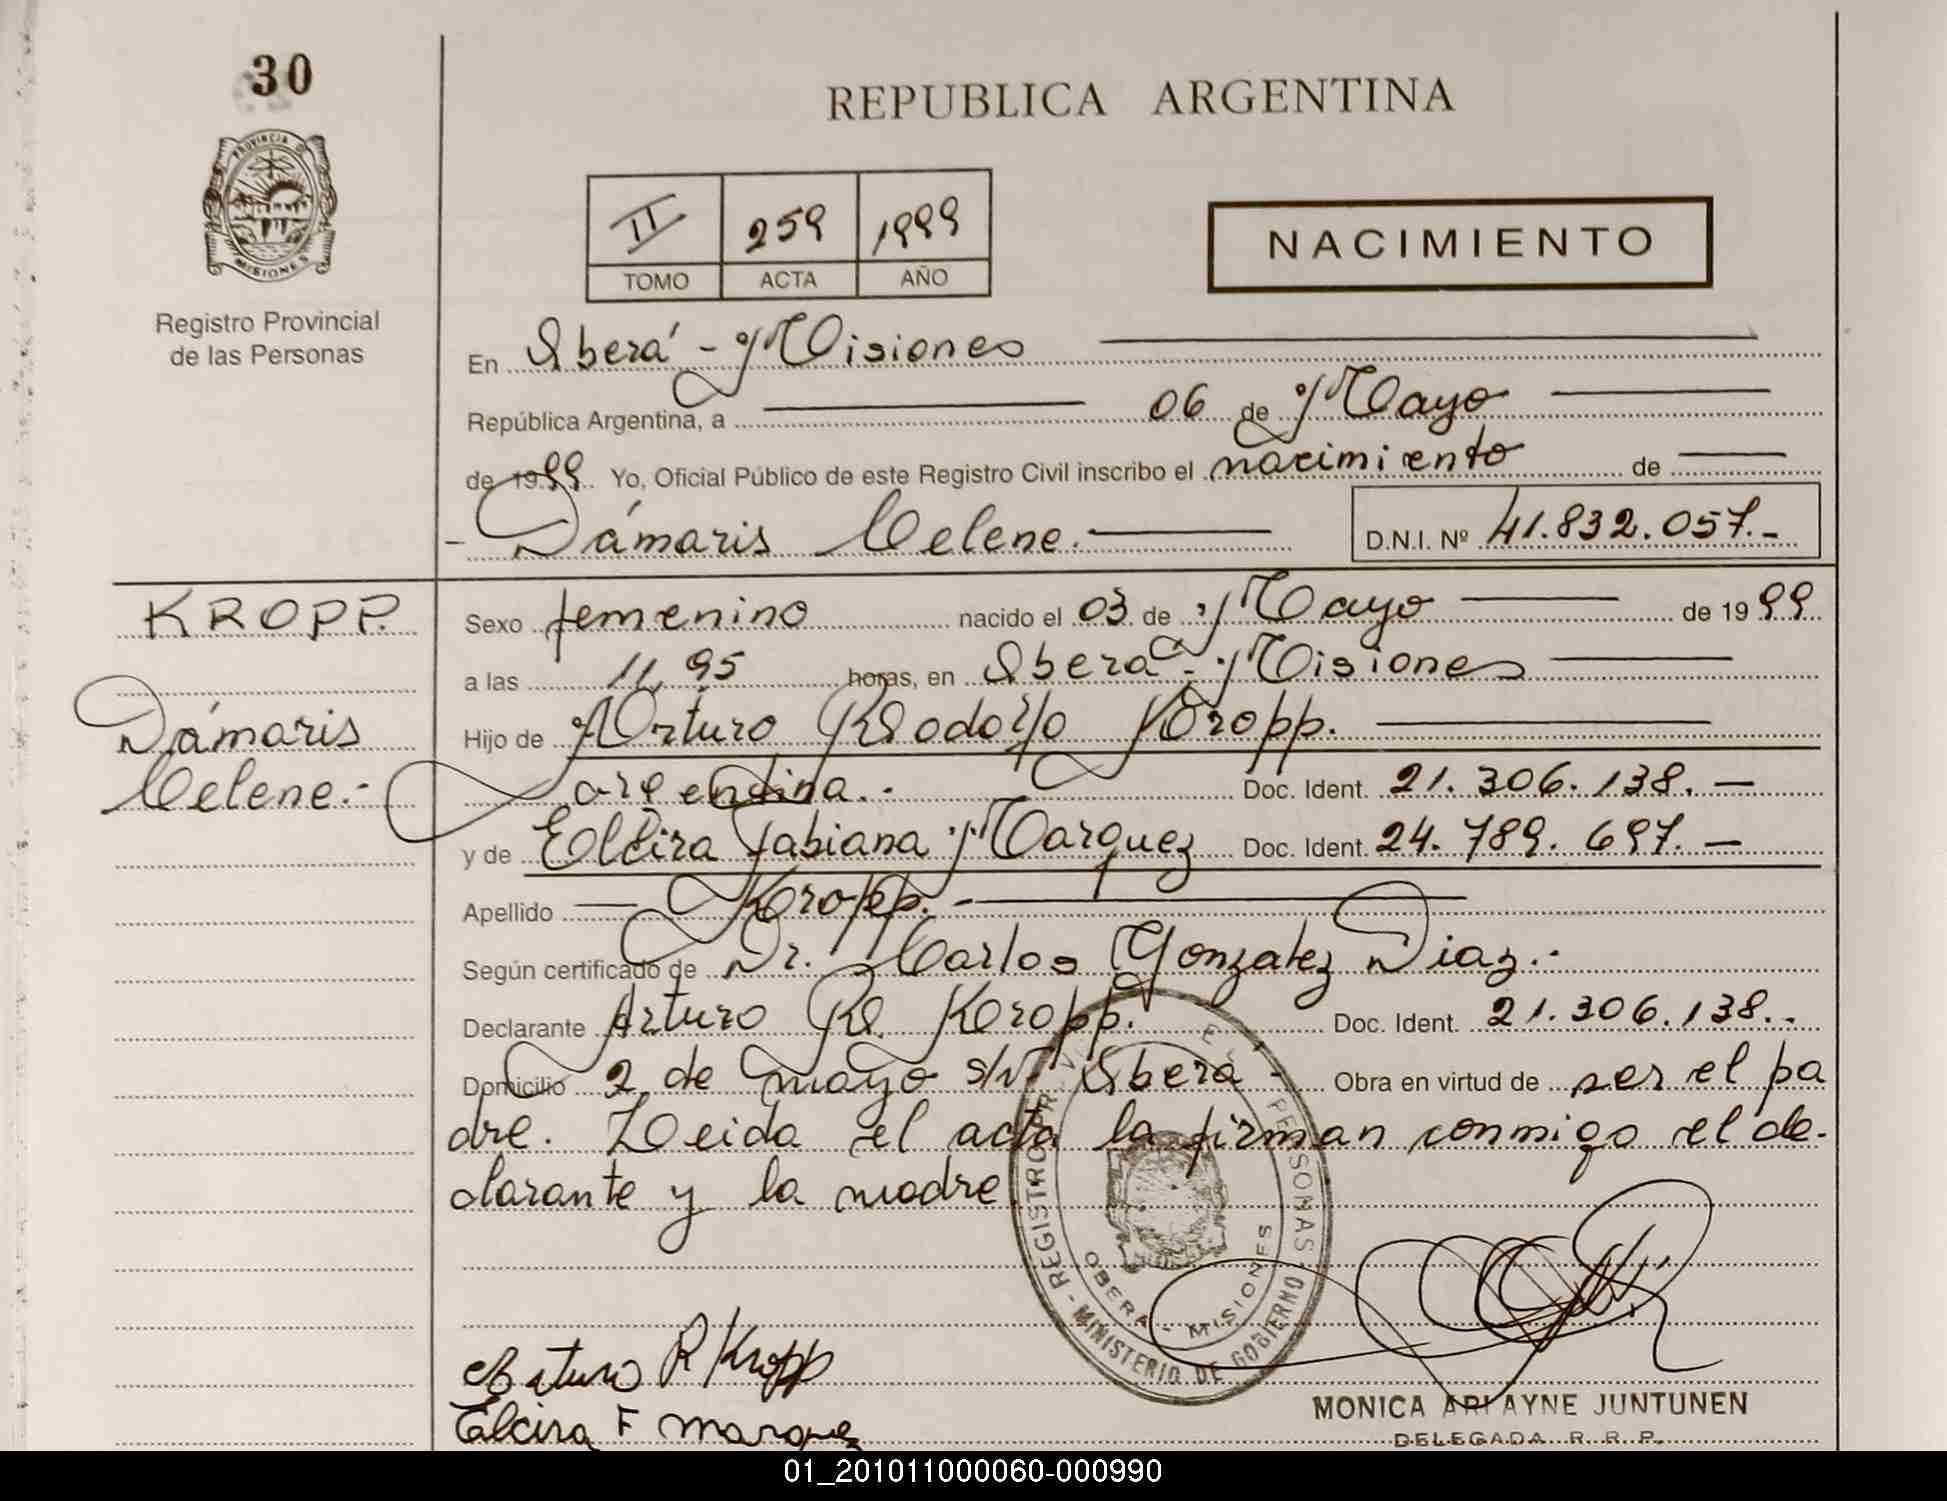 30
REPUBLICA ARGENTINA
PROVINCIA D
MISIONES
Registro Provincial
de las Personas
II 259 1999
TOMO ACTA AÑO
NACIMIENTO
En Oberá - Misiones
República Argentina, a 06 de Mayo
de 1999. Yo, Oficial Público de este Registro Civil inscribo el nacimiento de
Dámaris Celene.
D.N.I. Nº 41.832.057.-
KROPP.
Dámaris
Celene.-
Sexo femenino nacido el 03 de Mayo de 1999
a las 11,95 horas, en Oberá - Misiones
Hijo de Arturo Rodolfo Kropp.
argentina.- Doc. Ident. 21.306.138.—
y de Elcira Fabiana Marquez Doc. Ident. 24.789.697.—
Apellido — Kropp.-
Según certificado de Dr. Carlos Gonzalez Diaz.-
Declarante Arturo R. Kropp. Doc. Ident. 21.306.138..
Domicilio 2 de mayo s/Nº Oberá - Obra en virtud de ser el pa
dre. Leida el acta la firman conmigo el de-
clarante y la madre.
REGISTRO PR PERSONAS - MINISTERIO DE GOBIERNO
OBERA - MISIONES
Arturo R Kropp
Elcira F Marquez
MONICA ARLAYNE JUNTUNEN
DELEGADA R. R. P.
01_201011000060-000990